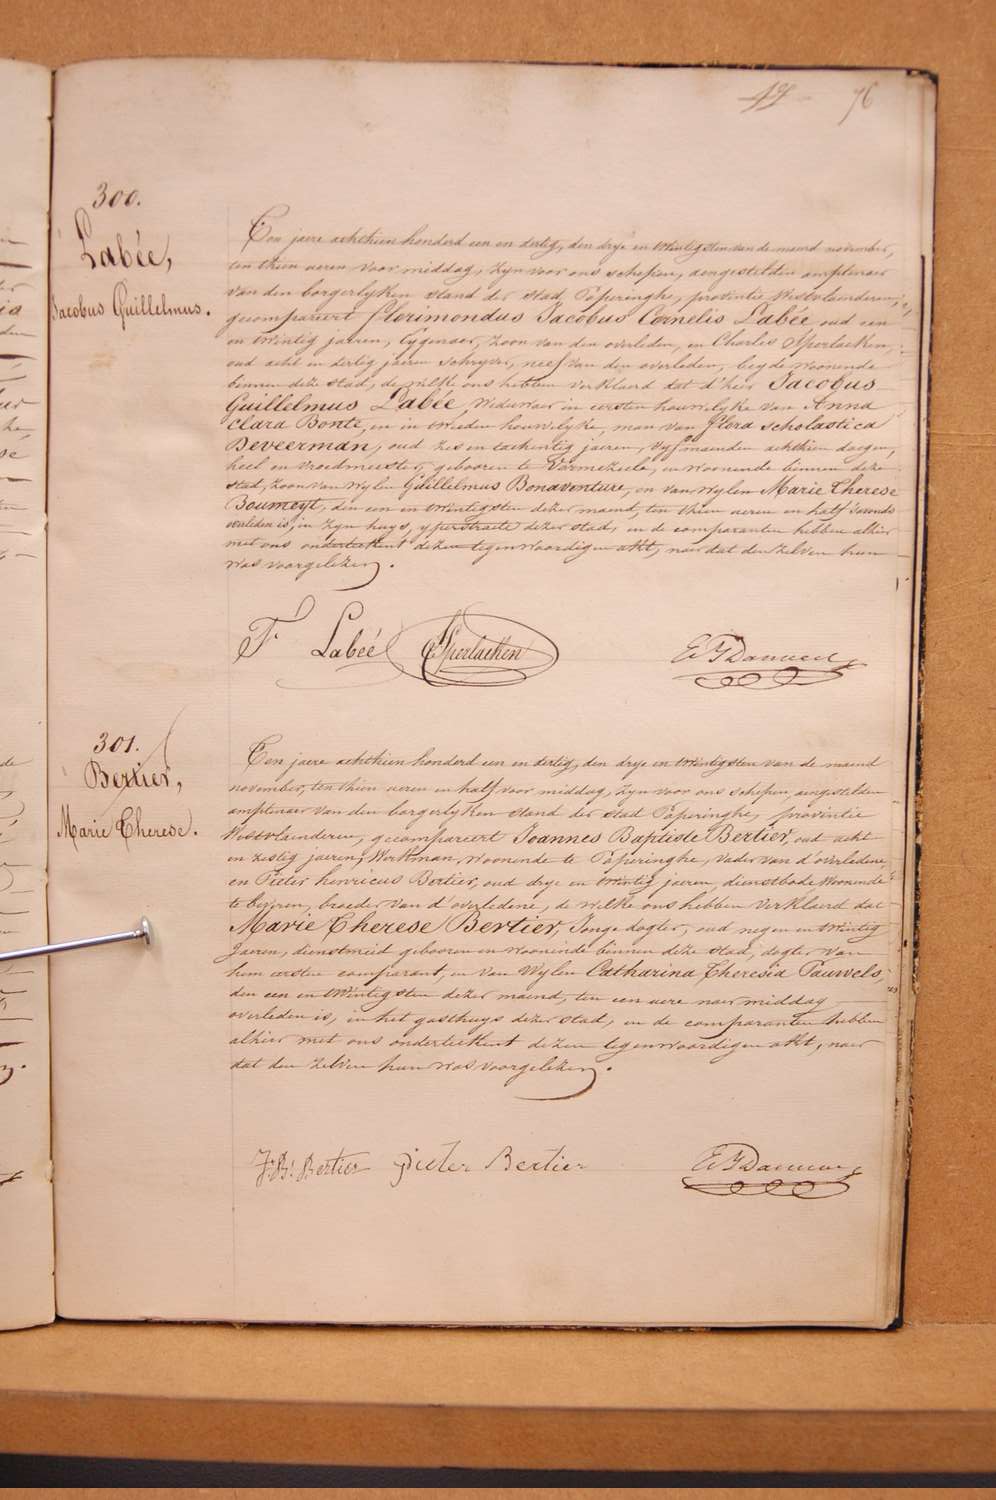 76
300.
Labée,
Jacobus Guillelmus.
Ten jaere achthien honderd een en dertig, den drye en twintigsten van de maend november,
ten thien ueren voor middag, zyn voor ons schepen, aengestelden amptenaer
van den borgerlyken stand der stad Poperinghe, provintie Westvlaenderen,
gecompareert Florimondus Jacobus Cornelis Labée, oud een
en twintig jaeren, Eygenaer, zoon van den overleden, en Charles Sperlaeken,
oud acht en dertig jaeren schryver, neef van den overleden, beyde woonende
binnen deze stad, de welke ons hebben verklaerd dat d'heer Jacobus
Guillelmus Labée, weduwaer in eersten houwelyke van Anna
Clara Bonte, en in tweeden houwelyke, man van Flora Scholastica
Deveerman, oud zes en tachentig jaeren, vyf maenden achthien daegen,
heel en vroedmeester, gebooren te Vormezeele, en woonende binnen deze
stad, zoon van wylen Guillelmus Bonaventure, en van wylen Marie Therese
Boumeyt, den een en twintigsten dezer maend, ten thien ueren en half 's avonds
overleden is, in zyn huys, yperstraete dezer stad, en de comparanten hebben alhier
met ons onderteekent dezen tegenwoordigen akt, naer dat den zelven hun
was voorgelezen.
F Labeé C Sperlaeken
301.
Bertier,
Marie Therese.
Ten jaere achthien honderd een en dertig, den drye en twintigsten van de maend
november, ten thien ueren en half voor middag, zyn voor ons schepen, aengestelden
amptenaer van den borgerlyken stand der stad Poperinghe, provintie
Westvlaenderen, gecompareert Joannes Baptiste Bertier, oud acht
en zestig jaeren, Werkman, woonende te Poperinghe, vader van d'overledene,
en Pieter henricus Bertier, oud drye en twintig jaeren, dienstbode, woonende
te beveren, broeder van d'overledene, de welke ons hebben verklaerd dat
Marie Therese Bertier, Jonge dogter, oud negen en twintig
Jaeren, dienstmeid gebooren en woonende binnen deze stad, dogter van
hem eersten comparant, en van wylen Catharina Theresia Pauwels,
den een en twintigsten dezer maend, ten een uere naer middag
overleden is, in het gasthuys dezer stad, en de comparanten hebben
alhier met ons onderteekent dezen tegenwoordigen akt, naer
dat den zelven hun was voorgelezen.
J: B: Bertier Pieter Bertier